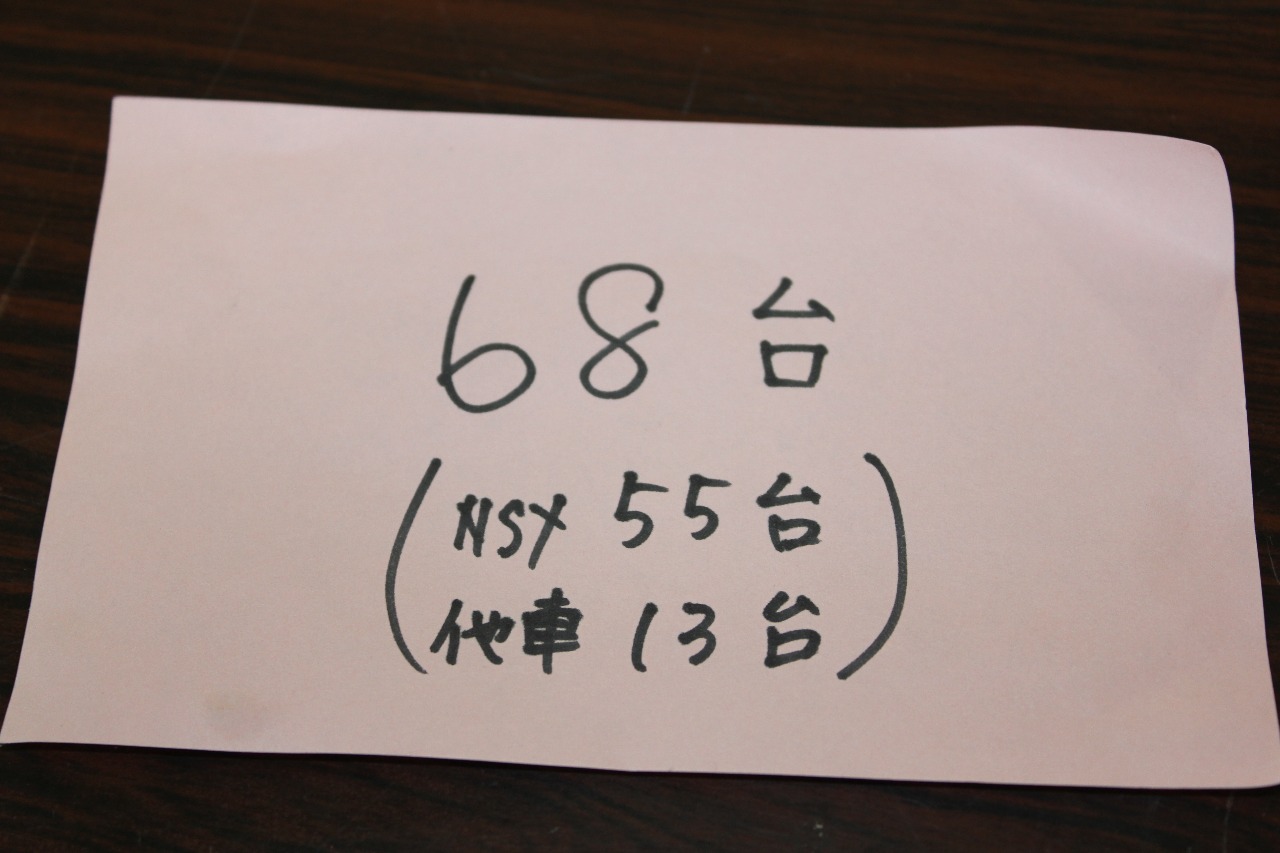 68台
(NSX 55台
他車 13台)